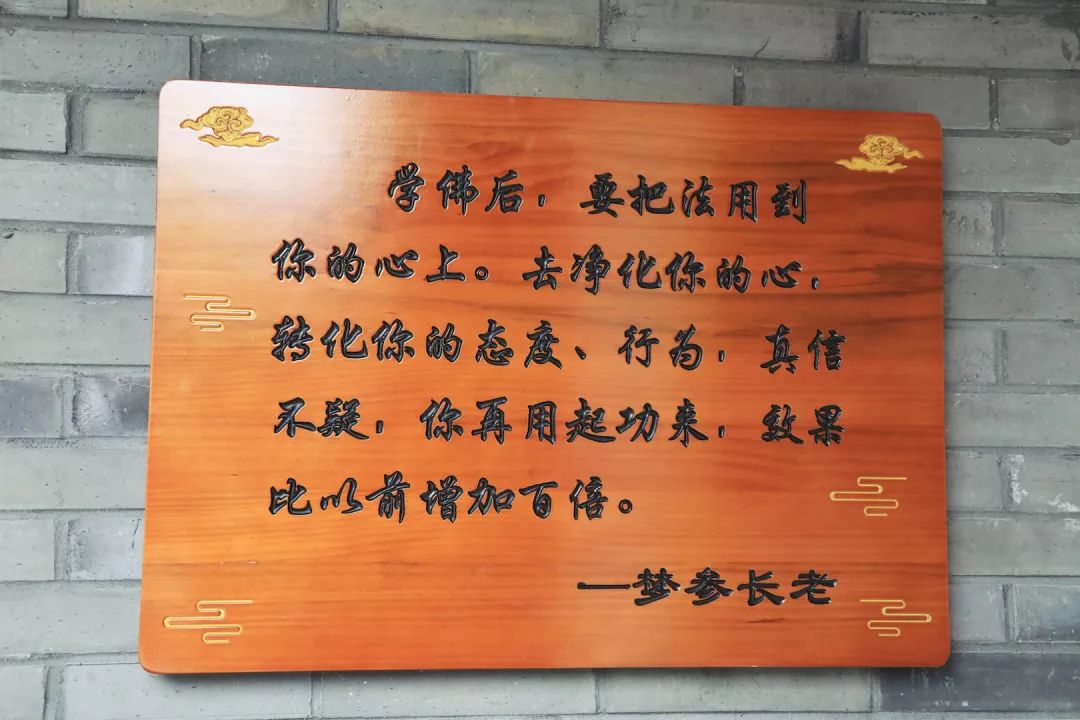 学佛后，要把法用到
你的心上。去净化你的心，
转化你的态度、行为，真信
不疑，你再用起功来，效果
比以前增加百倍。
—梦参长老